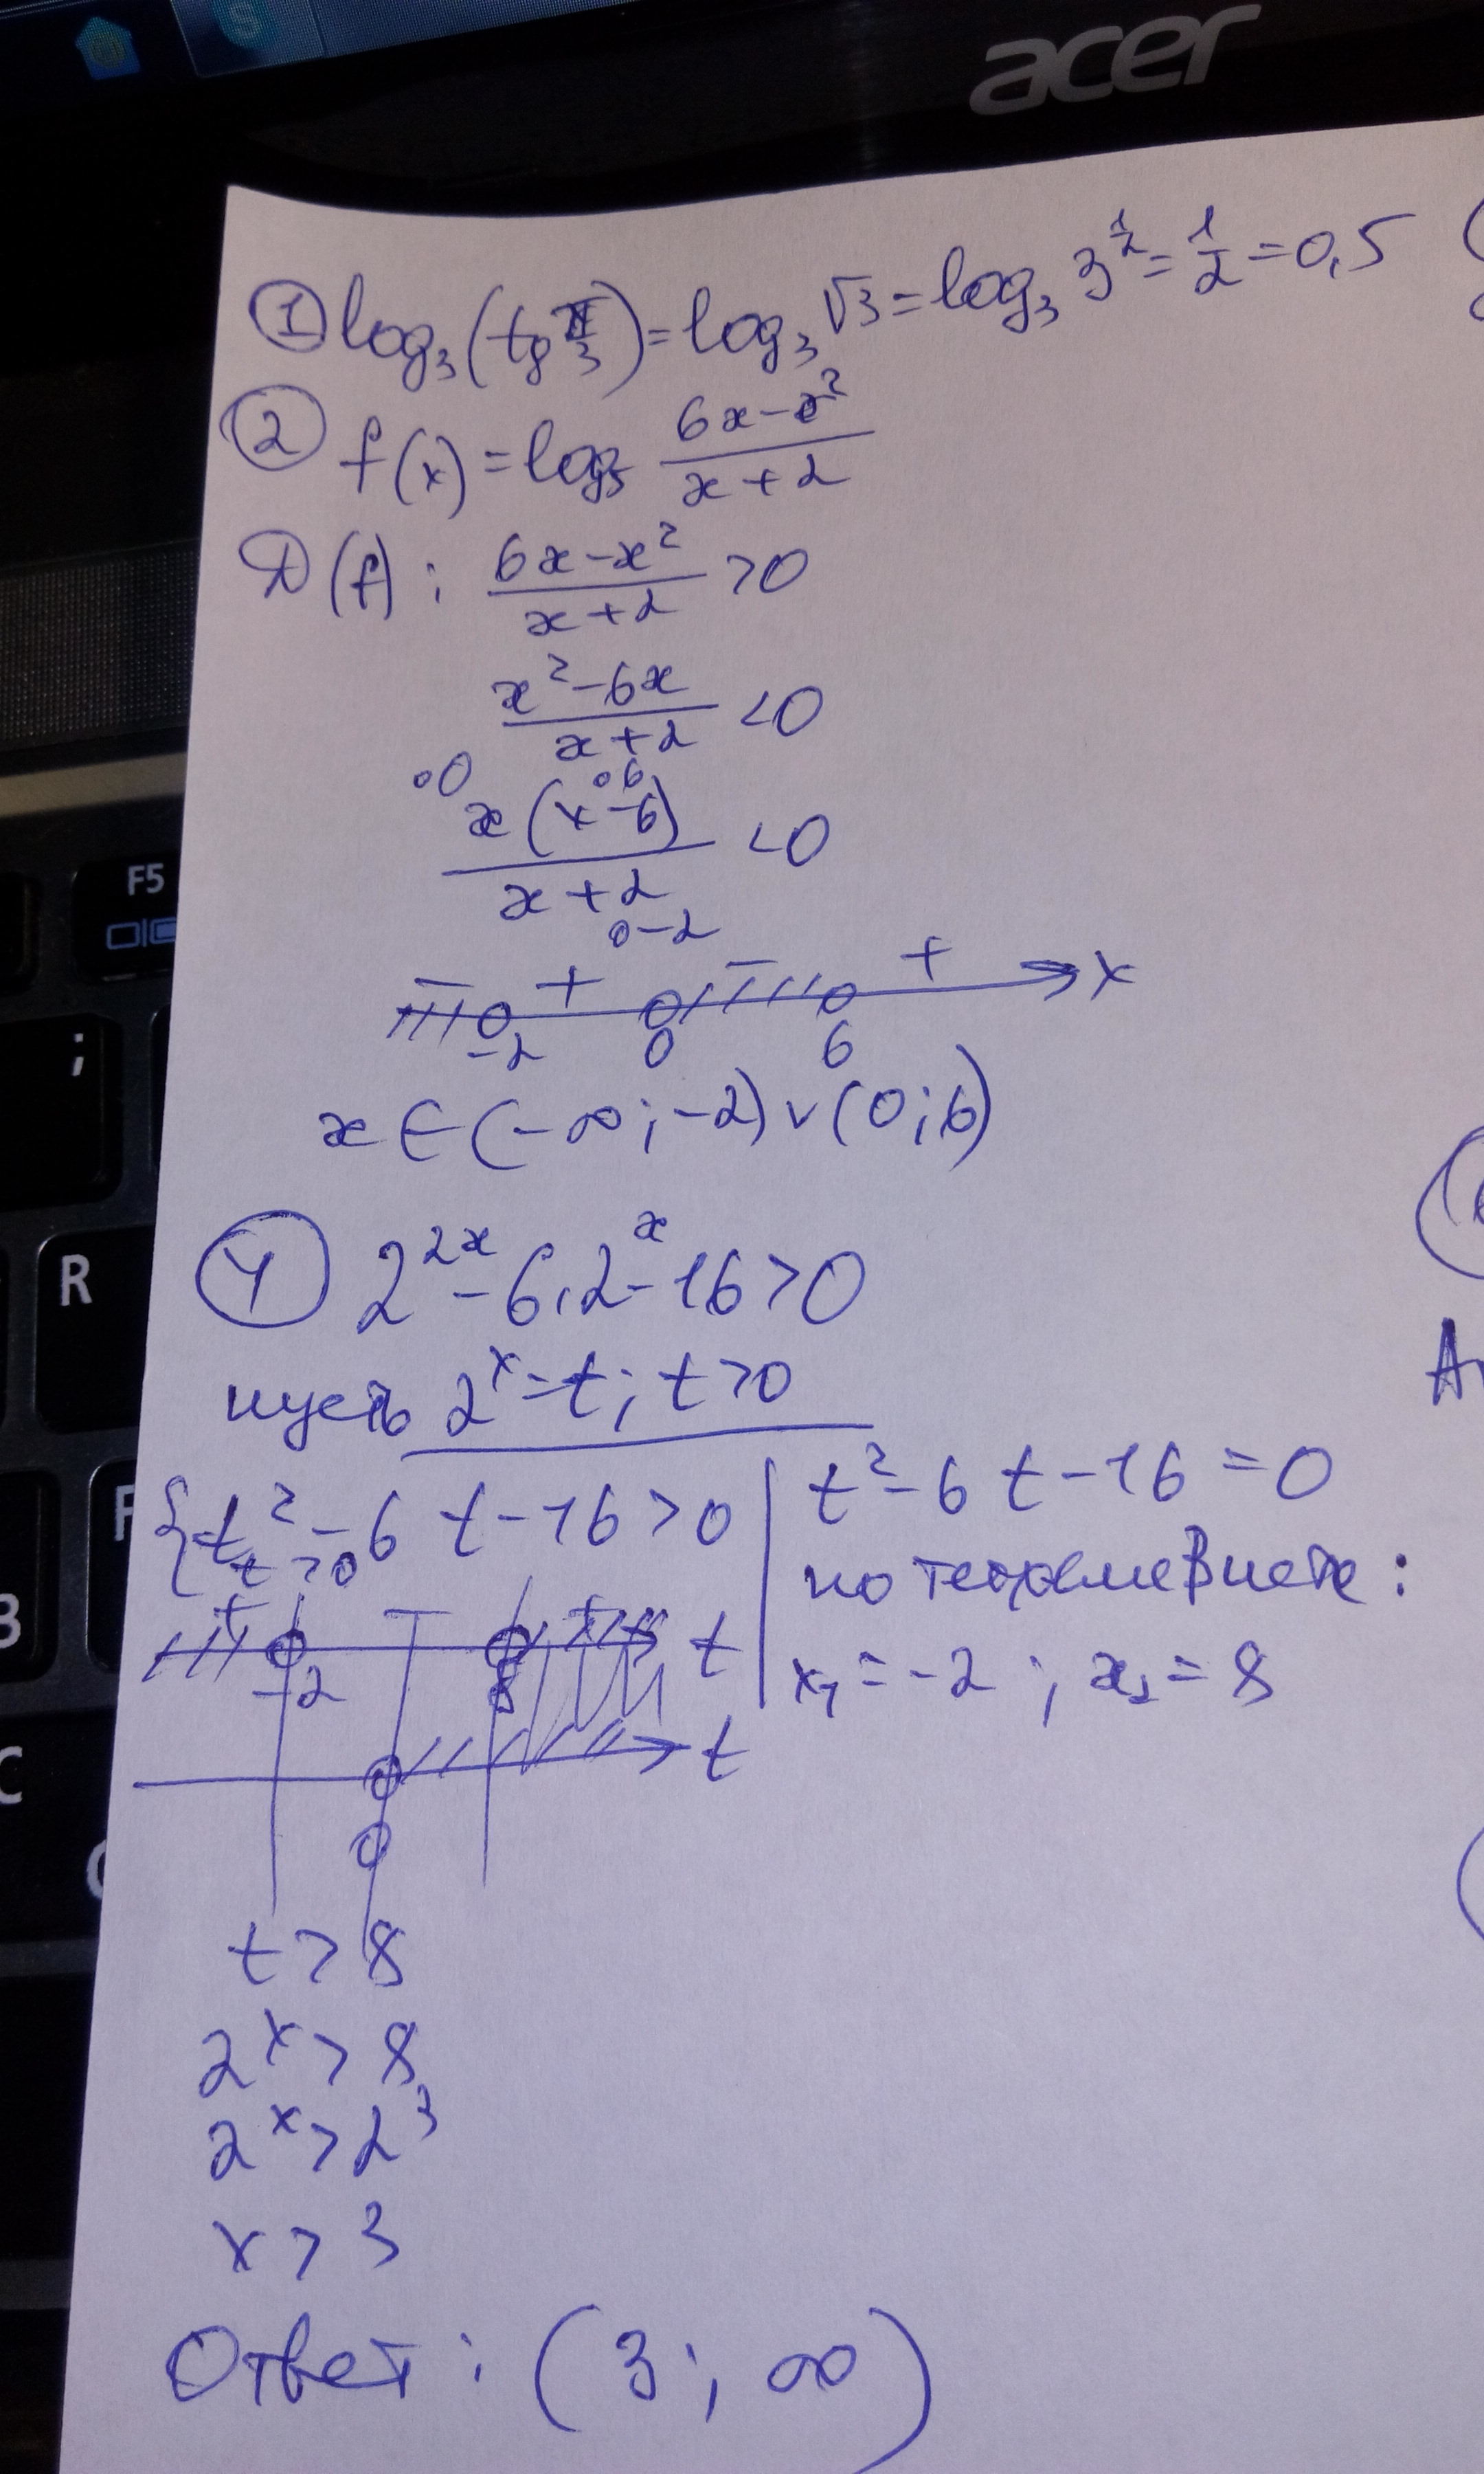 acer
① log₃(tg π/3) = log₃ √3 = log₃ 3^(1/2) = 1/2 = 0,5
② f(x) = log₅ (6x-x²)/(x+2)
D(f): (6x-x²)/(x+2) >0
(x²-6x)/(x+2) <0
∘0 ∘6
x(x-6)/(x+2) <0
∘-2
- + - + x
-2 0 6
x ∈ (-∞; -2) ∨ (0; 6)
④ 2^(2x) - 6·2^x - 16 > 0
пусть 2^x = t; t>0
{t² - 6t - 16 > 0
t > 0
t² - 6t - 16 = 0
по теореме Виета:
x₁ = -2 ; x₂ = 8
+ - + t
-2 8
t
0
t > 8
2^x > 8
2^x > 2³
x > 3
Ответ: (3; ∞)
F5
;
R